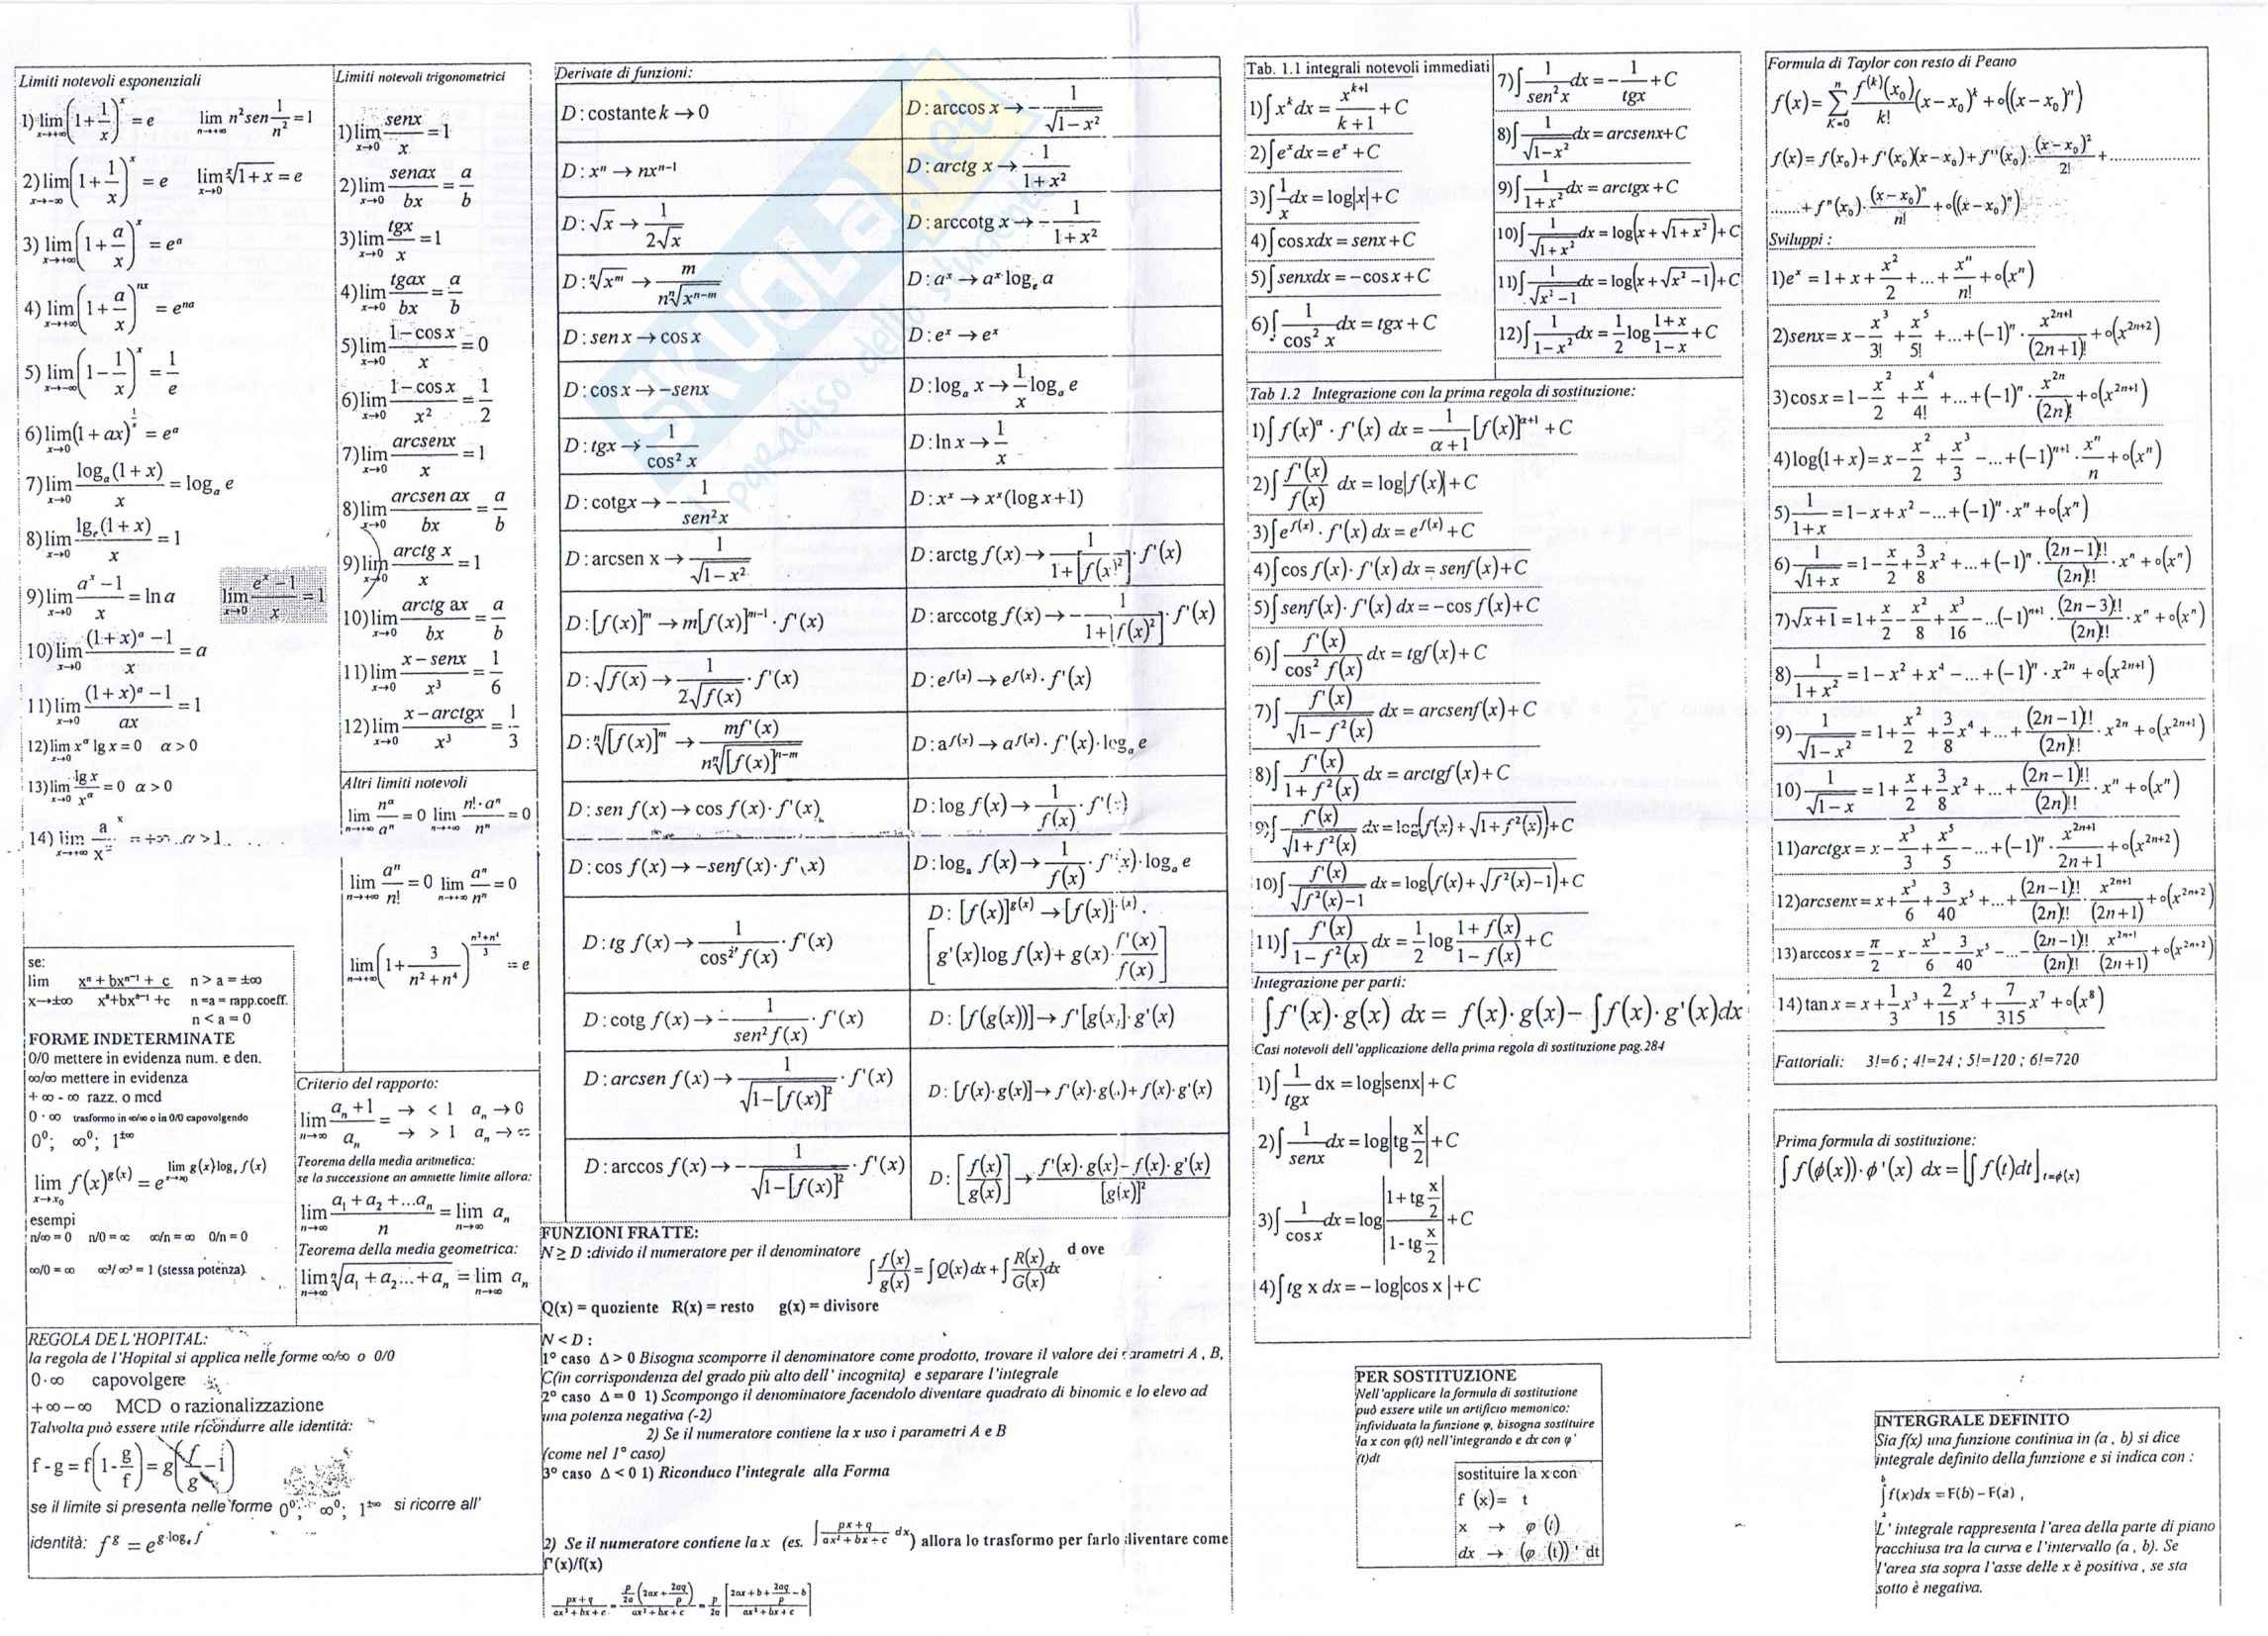 Limiti notevoli esponenziali
1) lim x→+∞ (1+1/x)^x = e    lim n→+∞ n² sen 1/n² = 1
2) lim x→-∞ (1+1/x)^x = e    lim x→0 ˣ√(1+x) = e
3) lim x→+∞ (1+a/x)^x = e^a
4) lim x→+∞ (1+a/x)^nx = e^na
5) lim x→-∞ (1-1/x)^x = 1/e
6) lim x→0 (1+ax)^(1/x) = e^a
7) lim x→0 log_a(1+x)/x = log_a e
8) lim x→0 lg_e(1+x)/x = 1
9) lim x→0 (a^x -1)/x = ln a    lim x→0 (e^x -1)/x = 1
10) lim x→0 ((1+x)^a -1)/x = a
11) lim x→0 ((1+x)^a -1)/ax = 1
12) lim x→0 x^α lg x = 0   α > 0
13) lim x→0 lg x/x^α = 0   α > 0
14) lim x→+∞ a^x/x = +∞ α > 1
se:
lim   xⁿ + bxⁿ⁻¹ + c   n > a = ±∞
x→±∞   xª+bxª⁻¹ +c   n =a = rapp.coeff.
n < a = 0
FORME INDETERMINATE
0/0 mettere in evidenza num. e den.
∞/∞ mettere in evidenza
+ ∞ - ∞ razz. o mcd
0 · ∞ trasformo in ∞/∞ o in 0/0 capovolgendo
0⁰; ∞⁰; 1^±∞
lim x→x₀ f(x)^g(x) = e^(lim x→x₀ g(x)log_e f(x))
esempi
n/∞ = 0   n/0 = ∞   ∞/n = ∞   0/n = 0
∞/0 = ∞   ∞³/∞³ = 1 (stessa potenza)
Limiti notevoli trigonometrici
1) lim x→0 senx/x = 1
2) lim x→0 senax/bx = a/b
3) lim x→0 tgx/x = 1
4) lim x→0 tgax/bx = a/b
5) lim x→0 (1-cos x)/x = 0
6) lim x→0 (1-cos x)/x² = 1/2
7) lim x→0 arcsenx/x = 1
8) lim x→0 arcsen ax/bx = a/b
9) lim x→0 arctg x/x = 1
10) lim x→0 arctg ax/bx = a/b
11) lim x→0 (x-senx)/x³ = 1/6
12) lim x→0 (x-arctgx)/x³ = 1/3
Altri limiti notevoli
lim n→+∞ n^α/aⁿ = 0   lim n→+∞ n!·aⁿ/nⁿ = 0
lim n→+∞ aⁿ/n! = 0   lim n→+∞ aⁿ/nⁿ = 0
lim n→+∞ (1+3/(n²+n⁴))^((n²+n⁴)/3) = e
Criterio del rapporto:
lim n→∞ a_n+1/a_n = → < 1   a_n → 0
→ > 1   a_n → ∞
Teorema della media aritmetica:
se la successione an ammette limite allora:
lim n→∞ (a₁ + a₂ + ...a_n)/n = lim n→∞ a_n
Teorema della media geometrica:
lim n→∞ ⁿ√(a₁ + a₂... + a_n) = lim n→∞ a_n
REGOLA DE L'HOPITAL:
la regola de l'Hopital si applica nelle forme ∞/∞ o 0/0
0·∞   capovolgere
+∞ - ∞   MCD o razionalizzazione
Talvolta può essere utile ricondurre alle identità:
f - g = f(1 - g/f) = g(f/g - 1)
se il limite si presenta nelle forme 0⁰; ∞⁰; 1^±∞ si ricorre all'
identità: f^g = e^(g·log_e f)
Derivate di funzioni:
D: costante k → 0   D: arccos x → -1/√(1-x²)
D: xⁿ → nxⁿ⁻¹   D: arctg x → 1/(1+x²)
D: √x → 1/(2√x)   D: arccotg x → -1/(1+x²)
D: ⁿ√(x^m) → m/(n ⁿ√(x^(n-m)))   D: a^x → a^x log_e a
D: sen x → cos x   D: e^x → e^x
D: cos x → -senx   D: log_a x → 1/x log_a e
D: tgx → 1/cos² x   D: ln x → 1/x
D: cotgx → -1/sen²x   D: x^x → x^x (log x + 1)
D: arcsen x → 1/√(1-x²)   D: arctg f(x) → 1/(1+[f(x)²]) · f'(x)
D: [f(x)]^m → m[f(x)]^(m-1) · f'(x)   D: arccotg f(x) → -1/(1+[f(x)²]) · f'(x)
D: √f(x) → 1/(2√f(x)) · f'(x)   D: e^f(x) → e^f(x) · f'(x)
D: ⁿ√([f(x)]^m) → mf'(x)/(n ⁿ√([f(x)]^(n-m)))   D: a^f(x) → a^f(x) · f'(x) · log_a e
D: sen f(x) → cos f(x) · f'(x)   D: log f(x) → 1/f(x) · f'(x)
D: cos f(x) → -senf(x) · f'(x)   D: log_a f(x) → 1/f(x) · f'(x) · log_a e
D: tg f(x) → 1/cos² f(x) · f'(x)   D: [f(x)]^g(x) → [f(x)]^g(x) · [g'(x) log f(x) + g(x) · f'(x)/f(x)]
D: cotg f(x) → -1/sen² f(x) · f'(x)   D: [f(g(x))] → f'[g(x)] · g'(x)
D: arcsen f(x) → 1/√(1-[f(x)]²) · f'(x)   D: [f(x)·g(x)] → f'(x)·g(x) + f(x)·g'(x)
D: arccos f(x) → -1/√(1-[f(x)]²) · f'(x)   D: [f(x)/g(x)] → (f'(x)·g(x) - f(x)·g'(x))/[g(x)]²
FUNZIONI FRATTE:
N ≥ D :divido il numeratore per il denominatore ∫f(x)/g(x) = ∫Q(x)dx + ∫R(x)/G(x)dx   d ove
Q(x) = quoziente   R(x) = resto   g(x) = divisore
N < D :
1° caso Δ > 0 Bisogna scomporre il denominatore come prodotto, trovare il valore dei parametri A , B,
C(in corrispondenza del grado più alto dell' incognita) e separare l'integrale
2° caso Δ = 0 1) Scompongo il denominatore facendolo diventare quadrato di binomio e lo elevo ad
una potenza negativa (-2)
2) Se il numeratore contiene la x uso i parametri A e B
(come nel 1° caso)
3° caso Δ < 0 1) Riconduco l'integrale alla Forma
2) Se il numeratore contiene la x (es. ∫(px+q)/(ax²+bx+c) dx) allora lo trasformo per farlo diventare come
f'(x)/f(x)
(px+q)/(ax²+bx+c) = p/2a (2ax + 2aq/p)/(ax²+bx+c) = p/2a [(2ax + b + 2aq/p - b)/(ax²+bx+c)]
Tab. 1.1 integrali notevoli immediati
1) ∫x^k dx = x^(k+1)/(k+1) + C
2) ∫e^x dx = e^x + C
3) ∫1/x dx = log|x| + C
4) ∫cos xdx = senx + C
5) ∫senxdx = -cos x + C
6) ∫1/cos² x dx = tgx + C
7) ∫1/sen² x dx = -1/tgx + C
8) ∫1/√(1-x²) dx = arcsenx + C
9) ∫1/(1+x²) dx = arctgx + C
10) ∫1/√(1+x²) dx = log(x + √(1+x²)) + C
11) ∫1/√(x²-1) dx = log(x + √(x²-1)) + C
12) ∫1/(1-x²) dx = 1/2 log (1+x)/(1-x) + C
Tab 1.2 Integrazione con la prima regola di sostituzione:
1) ∫f(x)^α · f'(x) dx = 1/(α+1) [f(x)]^(α+1) + C
2) ∫f'(x)/f(x) dx = log|f(x)| + C
3) ∫e^f(x) · f'(x) dx = e^f(x) + C
4) ∫cos f(x) · f'(x) dx = senf(x) + C
5) ∫senf(x) · f'(x) dx = -cos f(x) + C
6) ∫f'(x)/cos² f(x) dx = tgf(x) + C
7) ∫f'(x)/√(1-f²(x)) dx = arcsenf(x) + C
8) ∫f'(x)/(1+f²(x)) dx = arctgf(x) + C
9) ∫f'(x)/√(1+f²(x)) dx = log(f(x) + √(1+f²(x))) + C
10) ∫f'(x)/√(f²(x)-1) dx = log(f(x) + √(f²(x)-1)) + C
11) ∫f'(x)/(1-f²(x)) dx = 1/2 log (1+f(x))/(1-f(x)) + C
Integrazione per parti:
∫f'(x)·g(x) dx = f(x)·g(x) - ∫f(x)·g'(x)dx
Casi notevoli dell'applicazione della prima regola di sostituzione pag.284
1) ∫1/tgx dx = log|senx| + C
2) ∫1/senx dx = log|tg x/2| + C
3) ∫1/cosx dx = log|(1+tg x/2)/(1-tg x/2)| + C
4) ∫tg x dx = -log|cos x| + C
PER SOSTITUZIONE
Nell'applicare la formula di sostituzione
può essere utile un artificio memonico:
infividuata la funzione φ, bisogna sostituire
la x con φ(t) nell'integrando e dx con φ'
(t)dt
sostituire la x con
f (x)= t
x → φ (t)
dx → (φ (t)) ' dt
Formula di Taylor con resto di Peano
f(x) = Σ K=0 n f^(k)(x₀)/k! (x-x₀)^k + o((x-x₀)ⁿ)
f(x) = f(x₀) + f'(x₀)(x-x₀) + f''(x₀)·(x-x₀)²/2! + ...............
.......+ fⁿ(x₀)·(x-x₀)ⁿ/n! + o((x-x₀)ⁿ)
Sviluppi :
1) e^x = 1 + x + x²/2 + ... + xⁿ/n! + o(xⁿ)
2) senx = x - x³/3! + x⁵/5! + ... + (-1)ⁿ · x²ⁿ⁺¹/(2n+1)! + o(x²ⁿ⁺²)
3) cos x = 1 - x²/2 + x⁴/4! + ... + (-1)ⁿ · x²ⁿ/(2n)! + o(x²ⁿ⁺¹)
4) log(1+x) = x - x²/2 + x³/3 - ... + (-1)ⁿ⁺¹ · xⁿ/n + o(xⁿ)
5) 1/(1+x) = 1 - x + x² - ... + (-1)ⁿ · xⁿ + o(xⁿ)
6) 1/√(1+x) = 1 - x/2 + 3/8 x² + ... + (-1)ⁿ · (2n-1)!!/(2n)!! · xⁿ + o(xⁿ)
7) √(x+1) = 1 + x/2 - x²/8 + x³/16 - ...(-1)ⁿ⁺¹ · (2n-3)!!/(2n)!! · xⁿ + o(xⁿ)
8) 1/(1+x²) = 1 - x² + x⁴ - ... + (-1)ⁿ · x²ⁿ + o(x²ⁿ⁺¹)
9) 1/√(1-x²) = 1 + x²/2 + 3/8 x⁴ + ... + (2n-1)!!/(2n)!! · x²ⁿ + o(x²ⁿ⁺¹)
10) 1/√(1-x) = 1 + x/2 + 3/8 x² + ... + (2n-1)!!/(2n)!! · xⁿ + o(xⁿ)
11) arctgx = x - x³/3 + x⁵/5 - ... + (-1)ⁿ · x²ⁿ⁺¹/2n+1 + o(x²ⁿ⁺²)
12) arcsenx = x + x³/6 + 3/40 x⁵ + ... + (2n-1)!!/(2n)!! · x²ⁿ⁺¹/(2n+1) + o(x²ⁿ⁺²)
13) arccos x = π/2 - x - x³/6 - 3/40 x⁵ - ... - (2n-1)!!/(2n)!! · x²ⁿ⁺¹/(2n+1) + o(x²ⁿ⁺²)
14) tan x = x + 1/3 x³ + 2/15 x⁵ + 7/315 x⁷ + o(x⁸)
Fattoriali:   3!=6 ; 4!=24 ; 5!=120 ; 6!=720
Prima formula di sostituzione:
∫f(ϕ(x))·ϕ'(x) dx = [∫f(t)dt] t=ϕ(x)
INTERGRALE DEFINITO
Sia f(x) una funzione continua in (a , b) si dice
integrale definito della funzione e si indica con :
∫f(x)dx = F(b) - F(a) ,
L' integrale rappresenta l'area della parte di piano
racchiusa tra la curva e l'intervallo (a , b). Se
l'area sta sopra l'asse delle x è positiva , se sta
sotto è negativa.
SKUOLA.net
paradiso dello studente